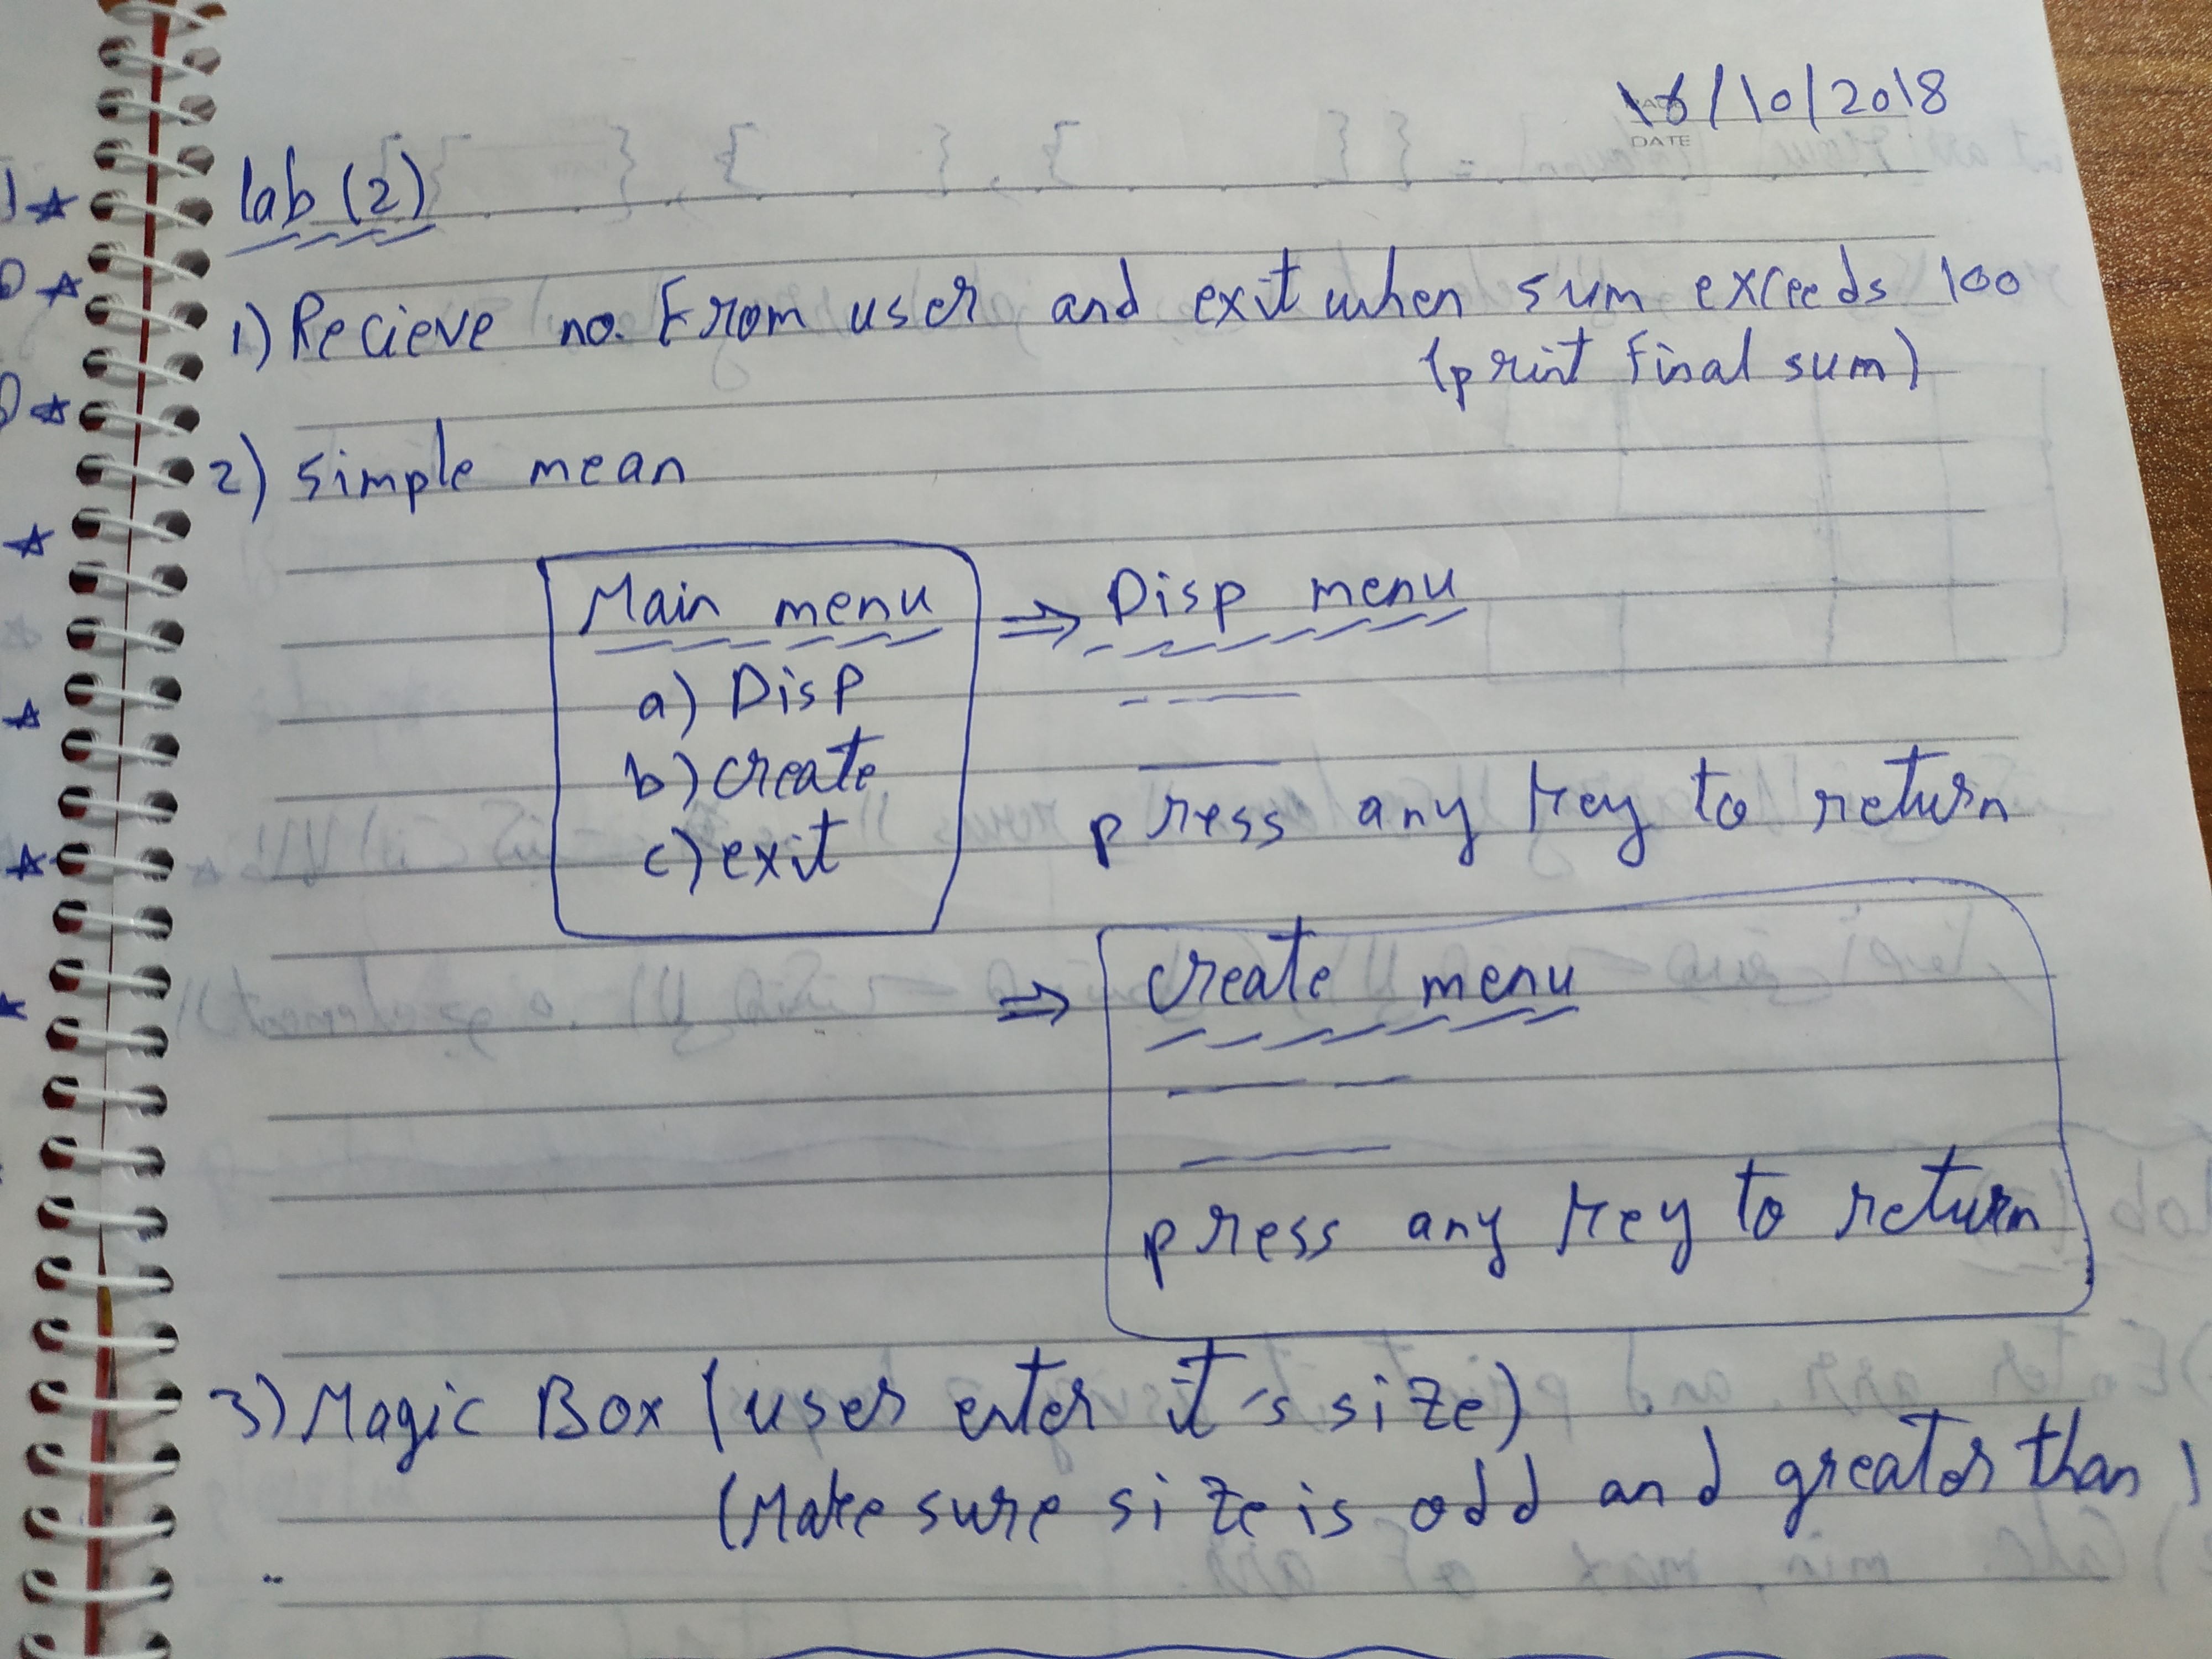 16/10/2018
DATE
lab (2)
1) Recieve no. From user and exit when sum exceeds 100
(print Final sum)
2) simple mean
Main menu ⇒ Disp menu
a) Disp
b) create
c) exit
press any key to return
⇒ create menu
press any key to return
3) Magic Box (user enter it's size)
(Make sure size is odd and greater than 1